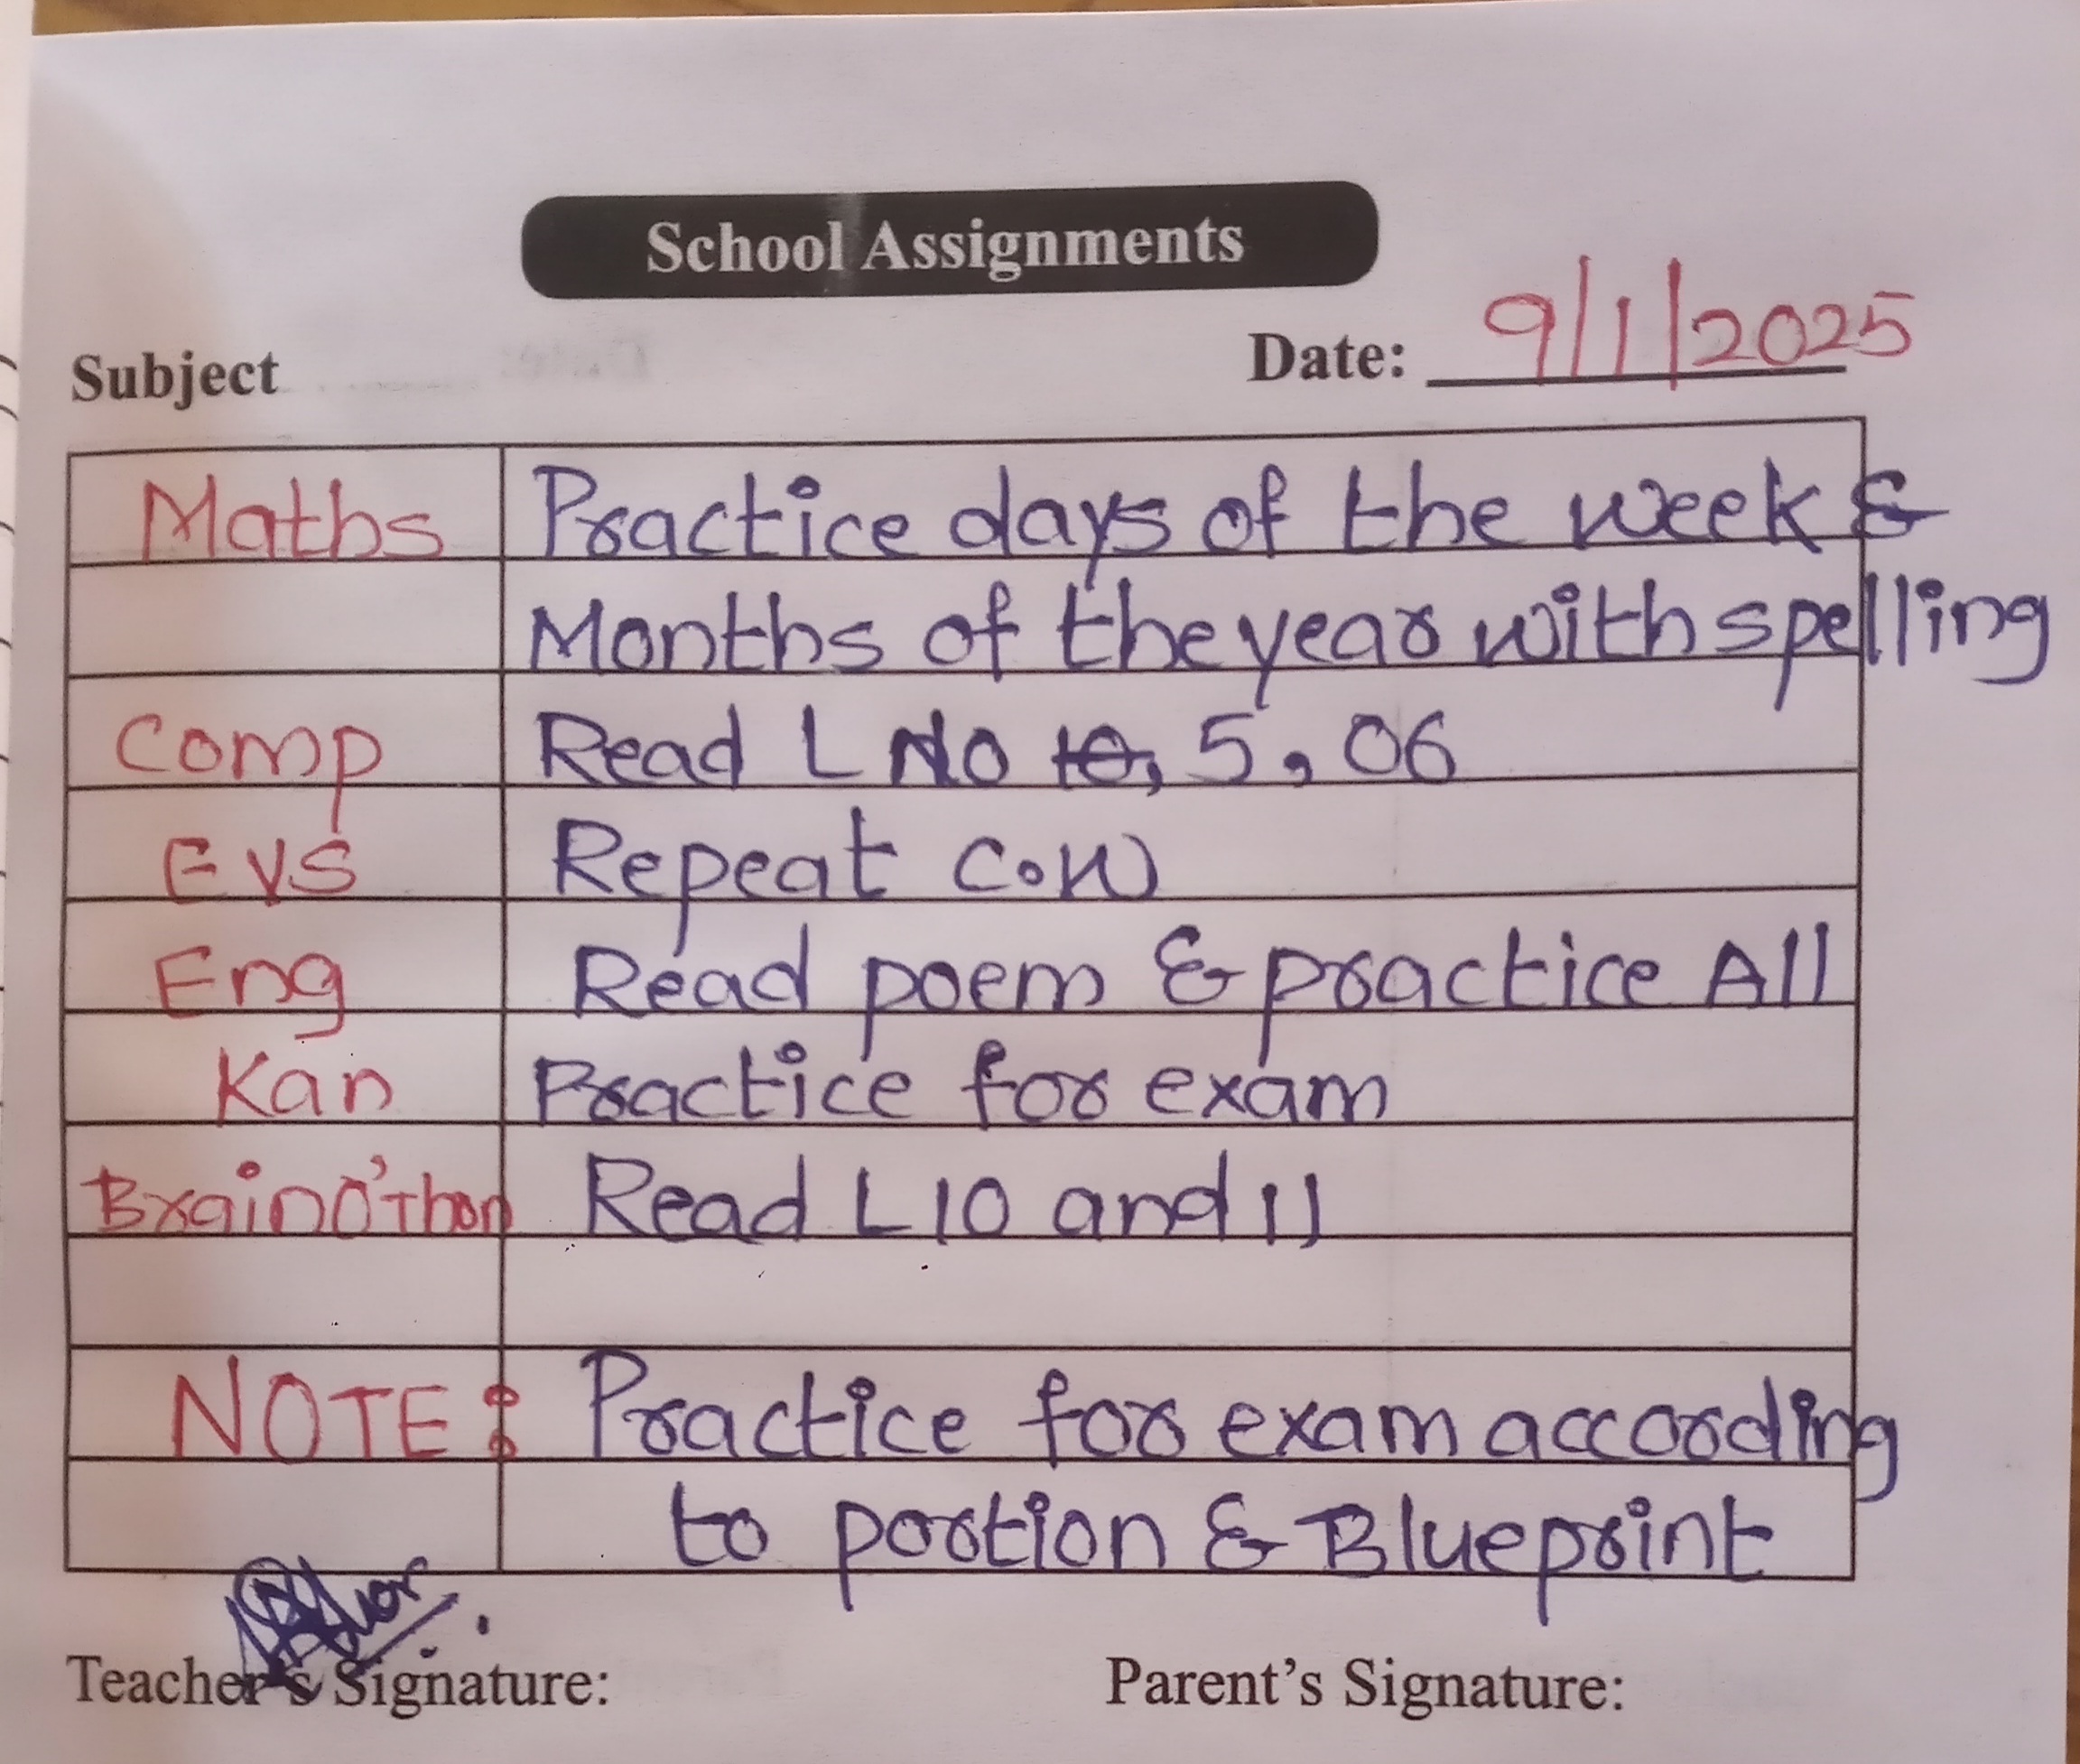 School Assignments
Subject Date: 9/1/2025
Maths Practice days of the week &
Months of the year with spelling
Comp Read L No 5, 06
EVS Repeat C.W
Eng Read poem & practice All
Kan Practice for exam
Brain O'Thon Read L 10 and 11
NOTE: Practice for exam according
to portion & Blueprint
Teacher's Signature: Parent's Signature: